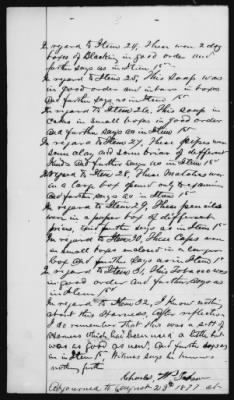 In regard to Item 24, These were 2 doz
boxes of Blacking in good order and
further says as in Item 1st
In regard to Item 25, This Soap was
in good order and in bars in boxes
and further says as in Item 1st
In regard to Item 26, This Soap in
cakes in small boxes in good order
and further says as in Item 1st
In regard to Item 27, These pipes were
some clay and some briar of different
kinds and further says as in Item 1st
In regard to Item 28, These Matches were
in a large box opened only to examine
and further says as in Item 1st
In regard to Item 29, These pencils
were in a paper box of different
prices, and further says as in Item 1st
In regard to Item 30, These Caps were
in small boxes enclosed in a larger
box and further says as in Item 1st
In regard to Item 31, This Tobacco was
in good order and further says as
in Item 1st
In regard to Item 32, I know nothing
about this Harness, After reflection
I do remember that this was a sett of
Harness which had been used a little, but
was as good as new, and further says
as in Item 1st. Witness says he knows
nothing further
Charles
Adjourned to August 23d 1877 at